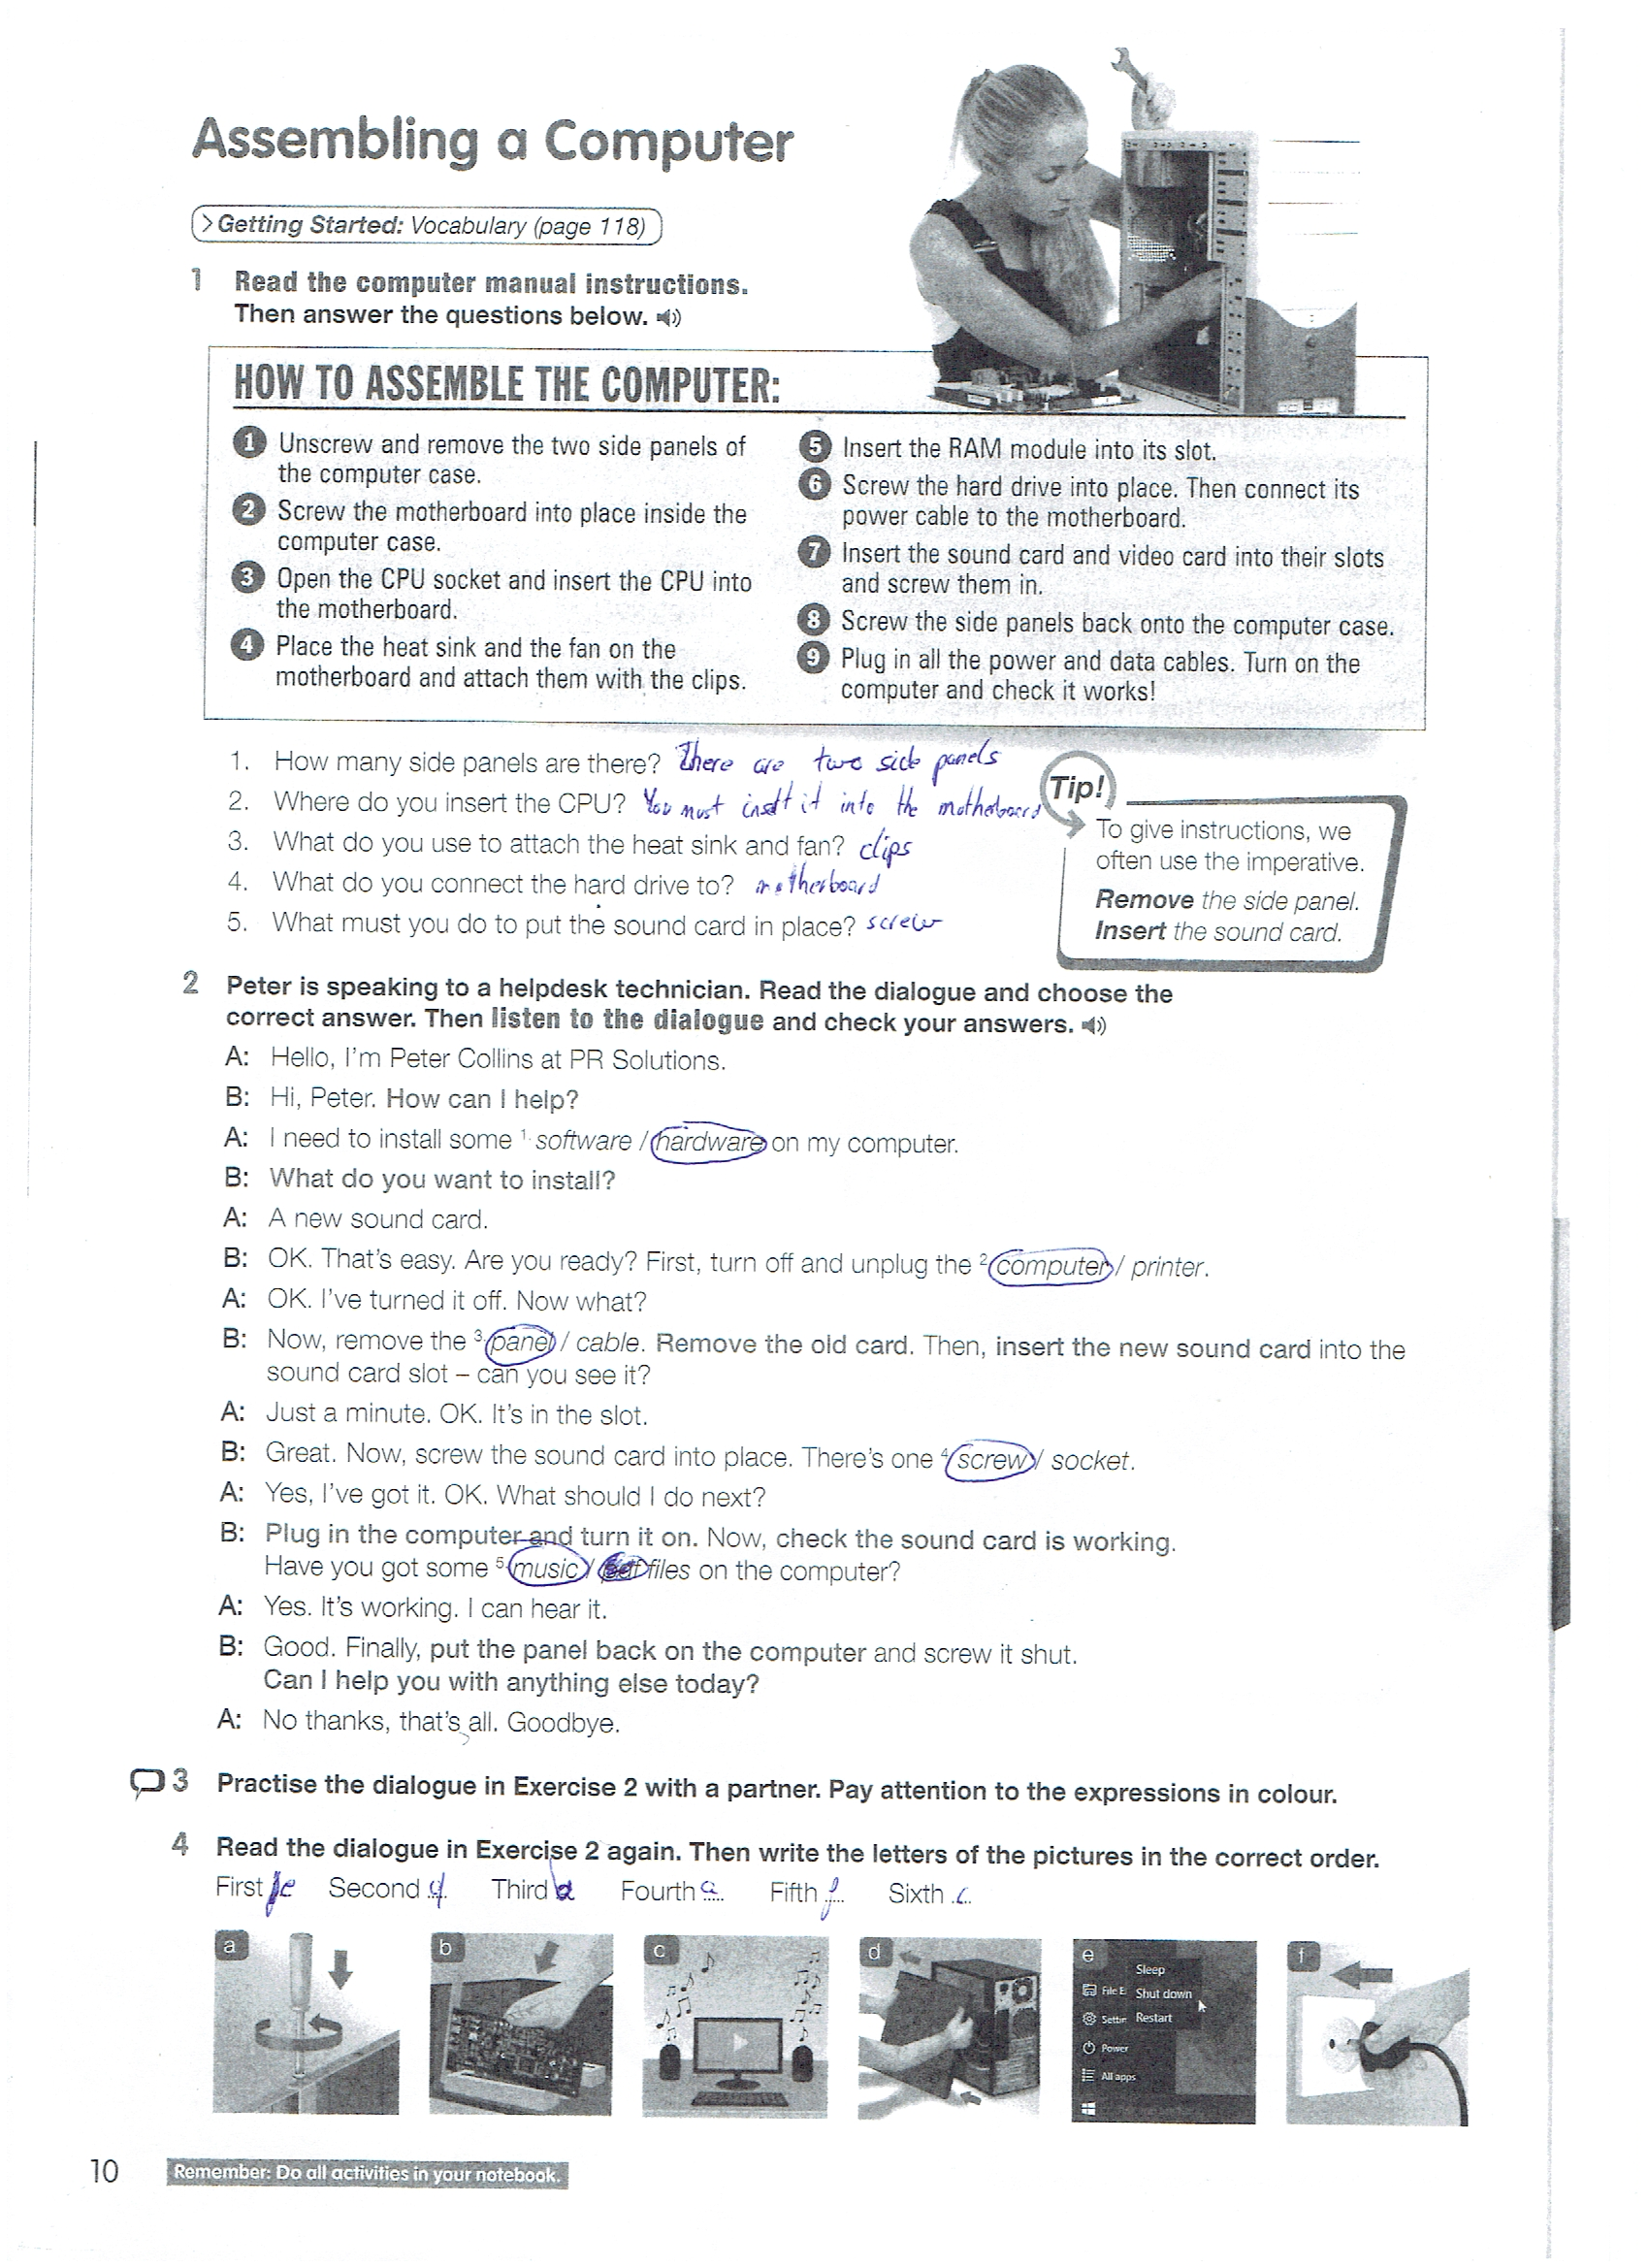 Assembling a Computer
> Getting Started: Vocabulary (page 118)
1 Read the computer manual instructions.
Then answer the questions below.
HOW TO ASSEMBLE THE COMPUTER:
1 Unscrew and remove the two side panels of
the computer case.
2 Screw the motherboard into place inside the
computer case.
3 Open the CPU socket and insert the CPU into
the motherboard.
4 Place the heat sink and the fan on the
motherboard and attach them with the clips.
5 Insert the RAM module into its slot.
6 Screw the hard drive into place. Then connect its
power cable to the motherboard.
7 Insert the sound card and video card into their slots
and screw them in.
8 Screw the side panels back onto the computer case.
9 Plug in all the power and data cables. Turn on the
computer and check it works!
1. How many side panels are there? There are two side panels
2. Where do you insert the CPU? You must it into the motherboard
3. What do you use to attach the heat sink and fan? clips
4. What do you connect the hard drive to? motherboard
5. What must you do to put the sound card in place? screw
Tip!
To give instructions, we
often use the imperative.
Remove the side panel.
Insert the sound card.
2 Peter is speaking to a helpdesk technician. Read the dialogue and choose the
correct answer. Then listen to the dialogue and check your answers.
A: Hello, I'm Peter Collins at PR Solutions.
B: Hi, Peter. How can I help?
A: I need to install some 1. software / hardware on my computer.
B: What do you want to install?
A: A new sound card.
B: OK. That's easy. Are you ready? First, turn off and unplug the 2. computer / printer.
A: OK. I've turned it off. Now what?
B: Now, remove the 3. panel / cable. Remove the old card. Then, insert the new sound card into the
sound card slot – can you see it?
A: Just a minute. OK. It's in the slot.
B: Great. Now, screw the sound card into place. There's one 4. screw / socket.
A: Yes, I've got it. OK. What should I do next?
B: Plug in the computer and turn it on. Now, check the sound card is working.
Have you got some 5. music / files on the computer?
A: Yes. It's working. I can hear it.
B: Good. Finally, put the panel back on the computer and screw it shut.
Can I help you with anything else today?
A: No thanks, that's all. Goodbye.
3 Practise the dialogue in Exercise 2 with a partner. Pay attention to the expressions in colour.
4 Read the dialogue in Exercise 2 again. Then write the letters of the pictures in the correct order.
First e Second d Third b Fourth a Fifth f Sixth c
a b c d e f
Sleep
File E Shut down
Settin Restart
Power
All apps
10 Remember: Do all activities in your notebook.